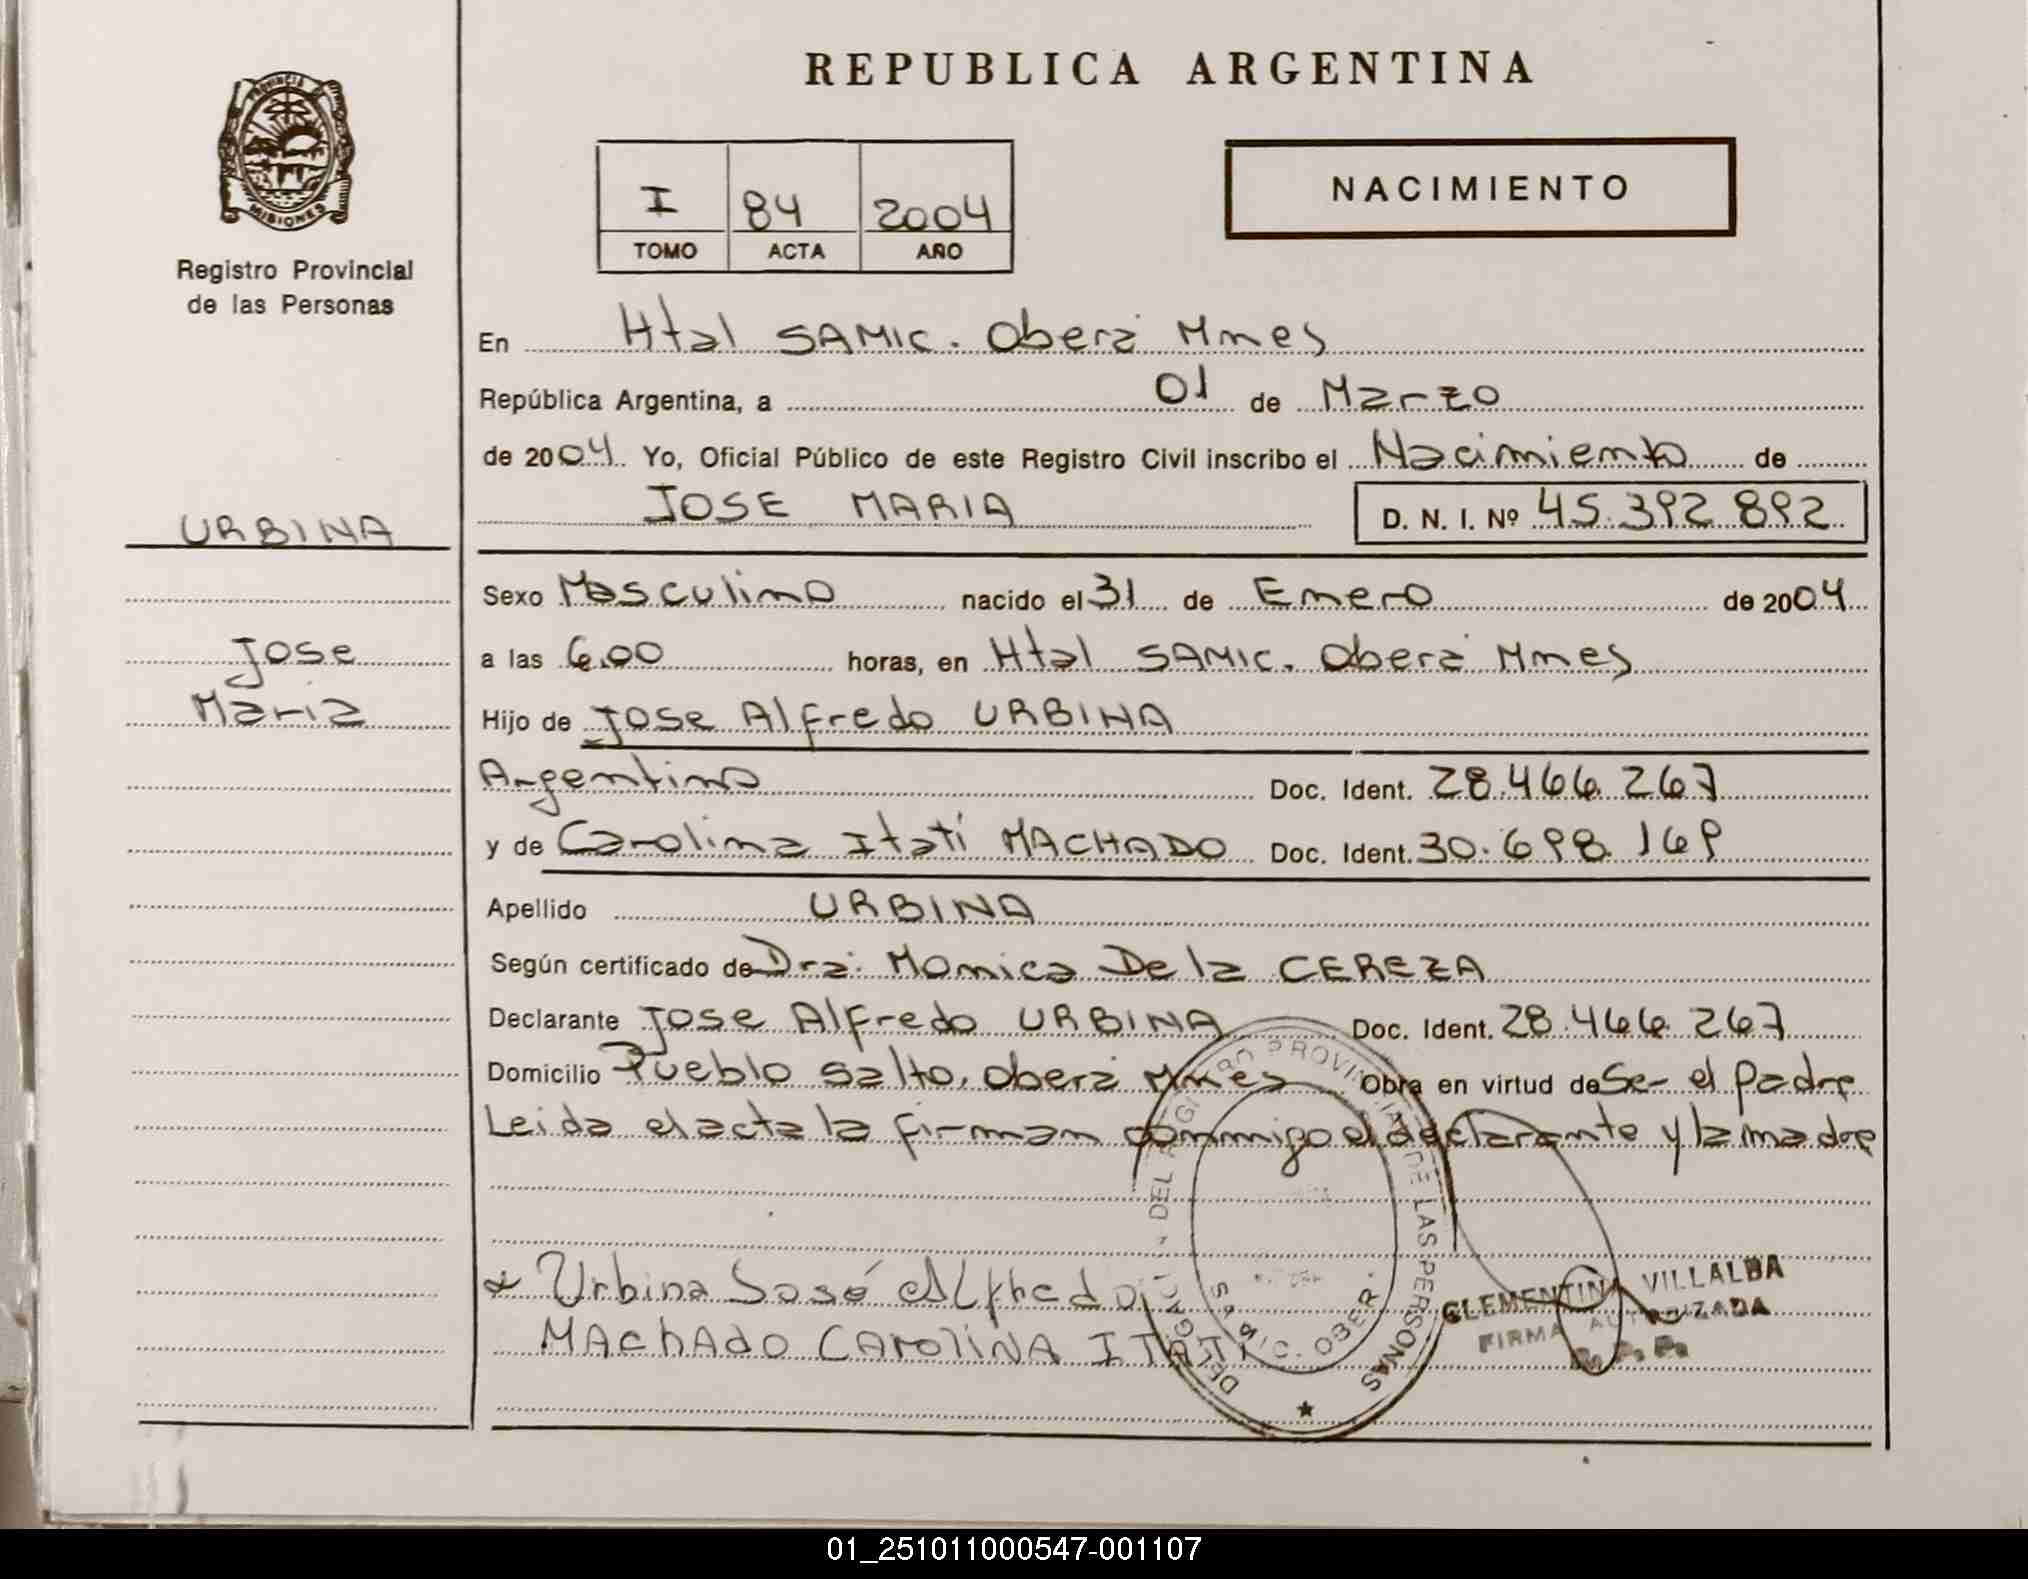 REPUBLICA ARGENTINA
PROVINCIA
MISIONES
Registro Provincial
de las Personas
I 84 2004
TOMO ACTA AÑO
NACIMIENTO
En Htal SAMIC. Oberá Mnes
República Argentina, a 01 de Marzo
de 2004 Yo, Oficial Público de este Registro Civil inscribo el Nacimiento de
JOSE MARIA D. N. I. Nº 45.392.892
URBINA
Jose
Maria
Sexo Masculino nacido el 31 de Enero de 2004
a las 6.00 horas, en Htal SAMIC. Oberá Mnes
Hijo de Jose Alfredo URBINA
Argentino Doc. Ident. 28.466.267
y de Carolina Itatí MACHADO Doc. Ident. 30.698.169
Apellido URBINA
Según certificado de Dra. Monica De la CEREZA
Declarante Jose Alfredo URBINA Doc. Ident. 28.466.267
Domicilio Pueblo Salto, Oberá Mnes Obra en virtud de Ser el padre
Leida el acta la firman conmigo el declarante y la madre
Urbina José Alfredo
MAChADO CAROLINA ITATI
DEL REGISTRO PROVINCIAL DE LAS PERSONAS
OBER
CLEMENTINA VILLALBA
FIRMA AUTORIZADA
R. P. P.
01_251011000547-001107